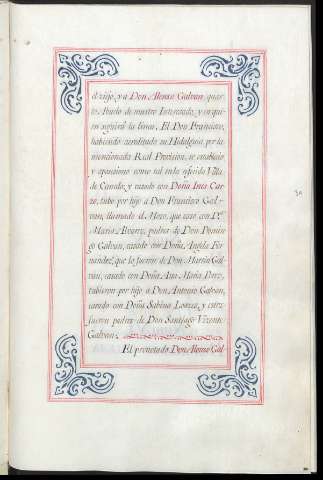 el viejo, y a Don Alonso Galvan, quar-
to Abuelo de nuestro Interesado, y en qui-
en seguirá la linea. El Don Francisco,
habiendo acreditado su Hidalguia por la
mencionada Real Provision, se establecio
y apeonó como tal en la referida Villa
de Canada; y casado con Doña Ines Car-
zo, tubo por hijo a Don Francisco Gal-
van, llamado el Mozo, que caso con D.ª
Maria Alvarez, padres de Don Domin-
go Galvan, casado con Doña Angela Fer-
nandez, que lo fueron de Don Martin Gal-
van, casado con Doña Ana Maria Perez,
tubieron por hijo a Don Antonio Galvan,
casado con Doña Sabina Loarca, y estos
fueron padres de Don Santiago Vicente
Galvan.
El precitado Don Alonso Gal-